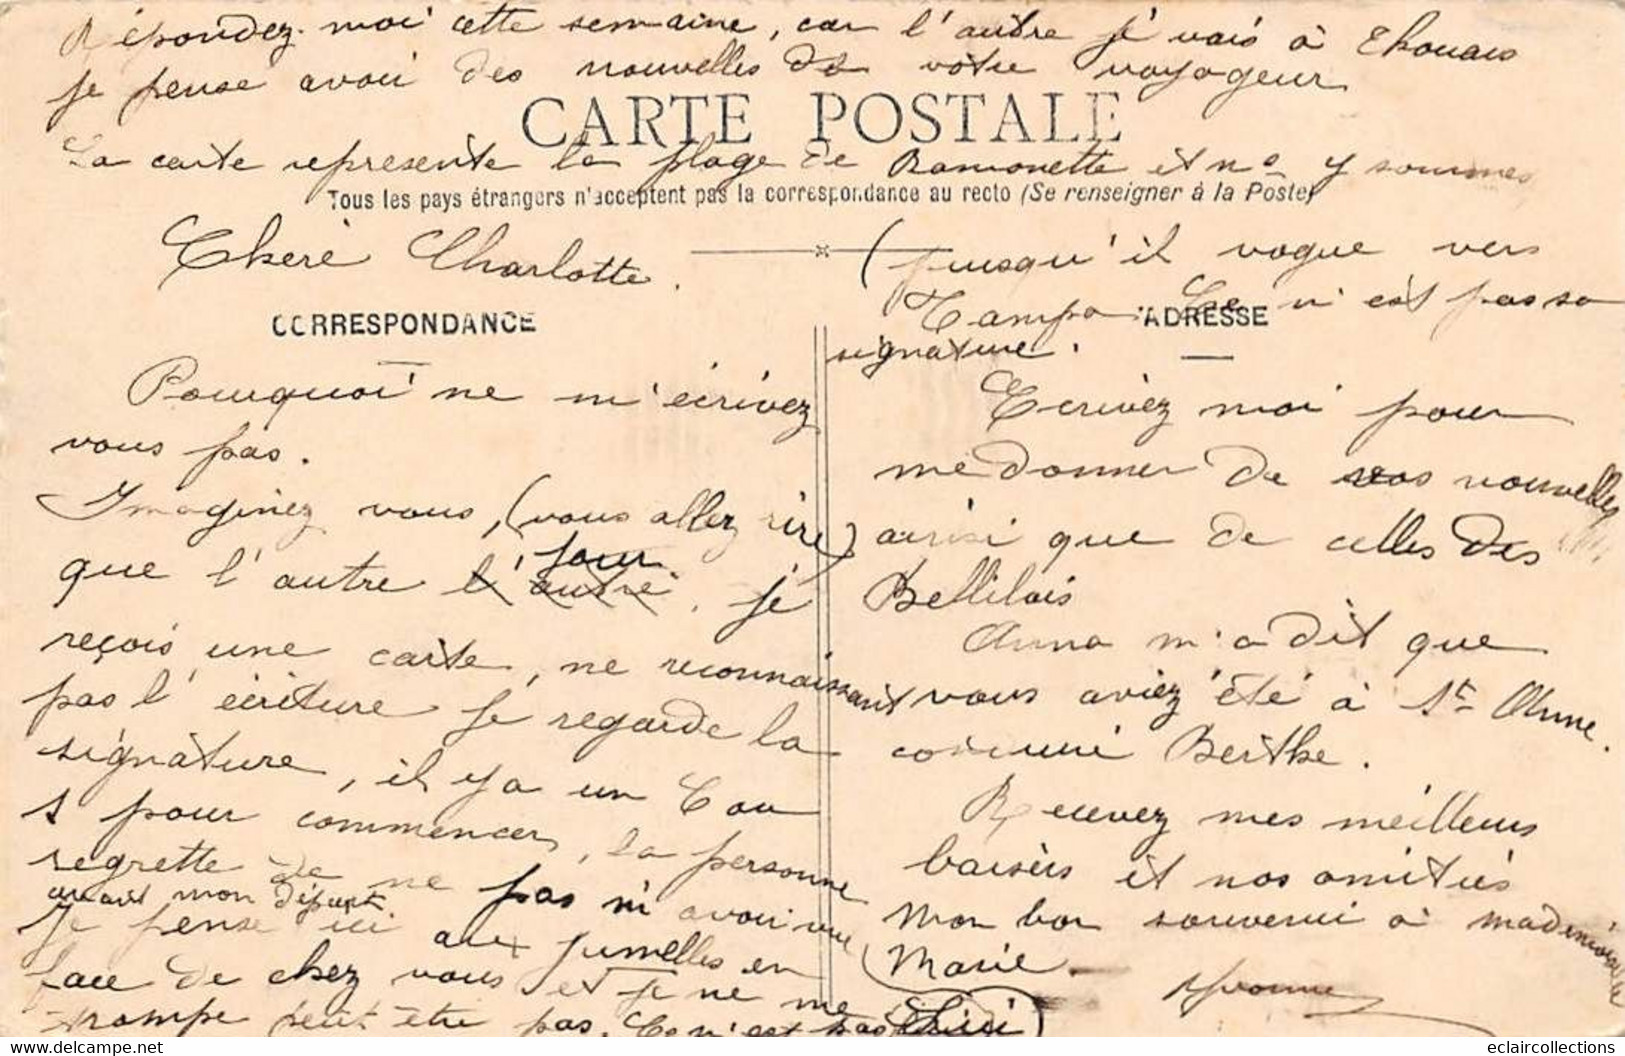 Répondez-moi cette semaine, car l'autre je vais à Thouars
je pense avoir des nouvelles de votre voyageur
CARTE POSTALE
La carte represente la plage de Ramonette et ns y sommes
Tous les pays étrangers n'acceptent pas la correspondance au recto (Se renseigner à la Poste)
Chère Charlotte.
CORRESPONDANCE
Pourquoi ne m'écrivez
vous pas.
Imaginez vous, (vous allez rire)
que l'autre l'autre jour, je
reçois une carte, ne reconnaissant
pas l'écriture je regarde la
signature, il y a un Cou
s pour commencer, la personne
regrette de ne pas m'avoir vue
avant mon départ
Je pense ici aux jumelles en
face de chez vous et je ne me
trompe peut être pas. Ce n'est pas
(puisqu'il vogue vers
Tampa. Ce n'est pas sa
ADRESSE
signature.
Ecrivez moi pour
me donner de vos nouvelles
ainsi que de celles des
Bellilois
Anna m'a dit que
vous aviez été à Ste Anne.
comme Berthe.
Recevez mes meilleurs
baisers et nos amitiés
Mon bon souvenir à mademoiselle
Marie.
Yvonne
eclaircollections